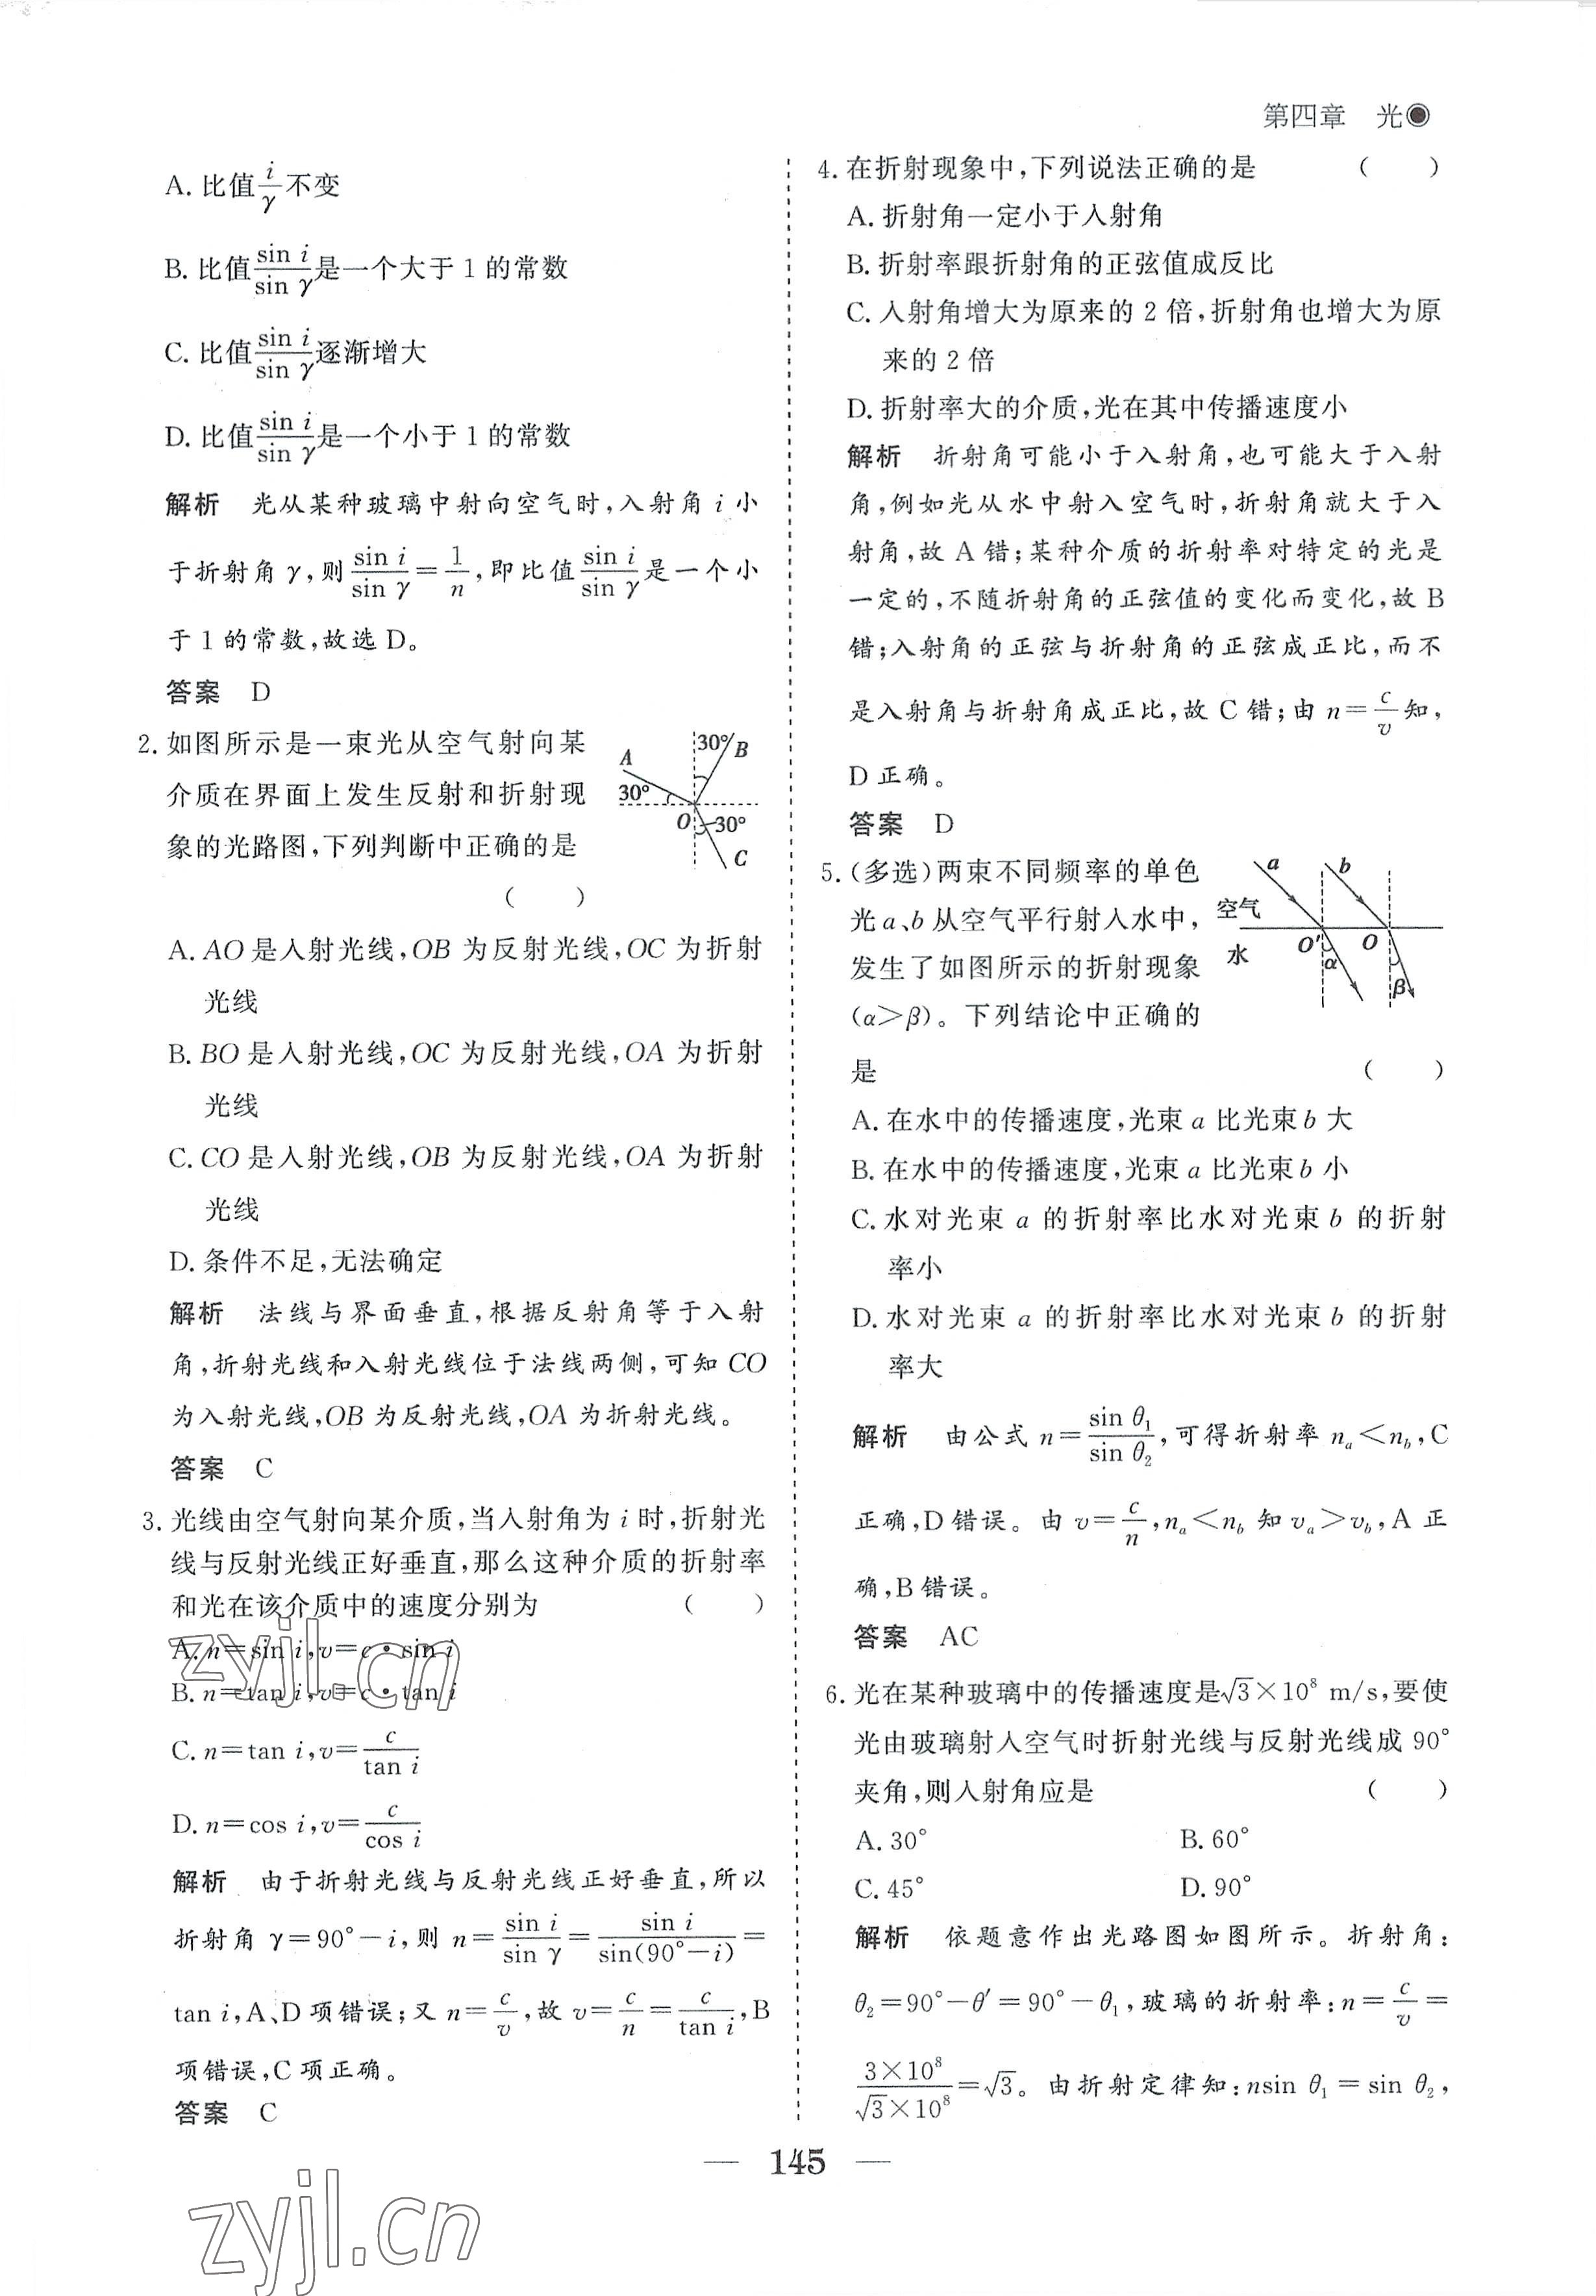 第四章 光
A. 比值i/γ不变
B. 比值sin i/sin γ是一个大于 1 的常数
C. 比值sin i/sin γ逐渐增大
D. 比值sin i/sin γ是一个小于 1 的常数
解析 光从某种玻璃中射向空气时,入射角 i 小
于折射角 γ,则 sin i/sin γ=1/n,即比值sin i/sin γ是一个小
于 1 的常数,故选 D。
答案 D
2. 如图所示是一束光从空气射向某
介质在界面上发生反射和折射现
象的光路图,下列判断中正确的是
( )
A
30°
B
30°
O
30°
C
A. AO 是入射光线,OB 为反射光线,OC 为折射
光线
B. BO 是入射光线,OC 为反射光线,OA 为折射
光线
C. CO 是入射光线,OB 为反射光线,OA 为折射
光线
D. 条件不足,无法确定
解析 法线与界面垂直,根据反射角等于入射
角,折射光线和入射光线位于法线两侧,可知 CO
为入射光线,OB 为反射光线,OA 为折射光线。
答案 C
3. 光线由空气射向某介质,当入射角为 i 时,折射光
线与反射光线正好垂直,那么这种介质的折射率
和光在该介质中的速度分别为 ( )
A. n=sin i,v=c·sin i
B. n=tan i,v=c·tan i
C. n=tan i,v=c/tan i
D. n=cos i,v=c/cos i
解析 由于折射光线与反射光线正好垂直,所以
折射角 γ=90°-i,则 n=sin i/sin γ=sin i/sin(90°-i)=
tan i,A、D 项错误;又 n=c/v,故 v=c/n=c/tan i,B
项错误,C 项正确。
答案 C
4. 在折射现象中,下列说法正确的是 ( )
A. 折射角一定小于入射角
B. 折射率跟折射角的正弦值成反比
C. 入射角增大为原来的 2 倍,折射角也增大为原
来的 2 倍
D. 折射率大的介质,光在其中传播速度小
解析 折射角可能小于入射角,也可能大于入射
角,例如光从水中射入空气时,折射角就大于入
射角,故 A 错;某种介质的折射率对特定的光是
一定的,不随折射角的正弦值的变化而变化,故 B
错;入射角的正弦与折射角的正弦成正比,而不
是入射角与折射角成正比,故 C 错;由 n=c/v知,
D 正确。
答案 D
5. (多选)两束不同频率的单色
光 a、b 从空气平行射入水中,
发生了如图所示的折射现象
(α>β)。下列结论中正确的
是 ( )
a
b
空气
水
O′
O
α
β
A. 在水中的传播速度,光束 a 比光束 b 大
B. 在水中的传播速度,光束 a 比光束 b 小
C. 水对光束 a 的折射率比水对光束 b 的折射
率小
D. 水对光束 a 的折射率比水对光束 b 的折射
率大
解析 由公式 n=sin θ₁/sin θ₂,可得折射率 nₐ<n_b,C
正确,D 错误。由 v=c/n,nₐ<n_b 知 vₐ>v_b,A 正
确,B 错误。
答案 AC
6. 光在某种玻璃中的传播速度是√3×10⁸ m/s,要使
光由玻璃射入空气时折射光线与反射光线成 90°
夹角,则入射角应是 ( )
A. 30° B. 60°
C. 45° D. 90°
解析 依题意作出光路图如图所示。折射角:
θ₂=90°-θ′=90°-θ₁,玻璃的折射率:n=c/v=
3×10⁸/√3×10⁸=√3。由折射定律知:nsin θ₁=sin θ₂,
— 145 —
zyjl.cn
zyjl.cn